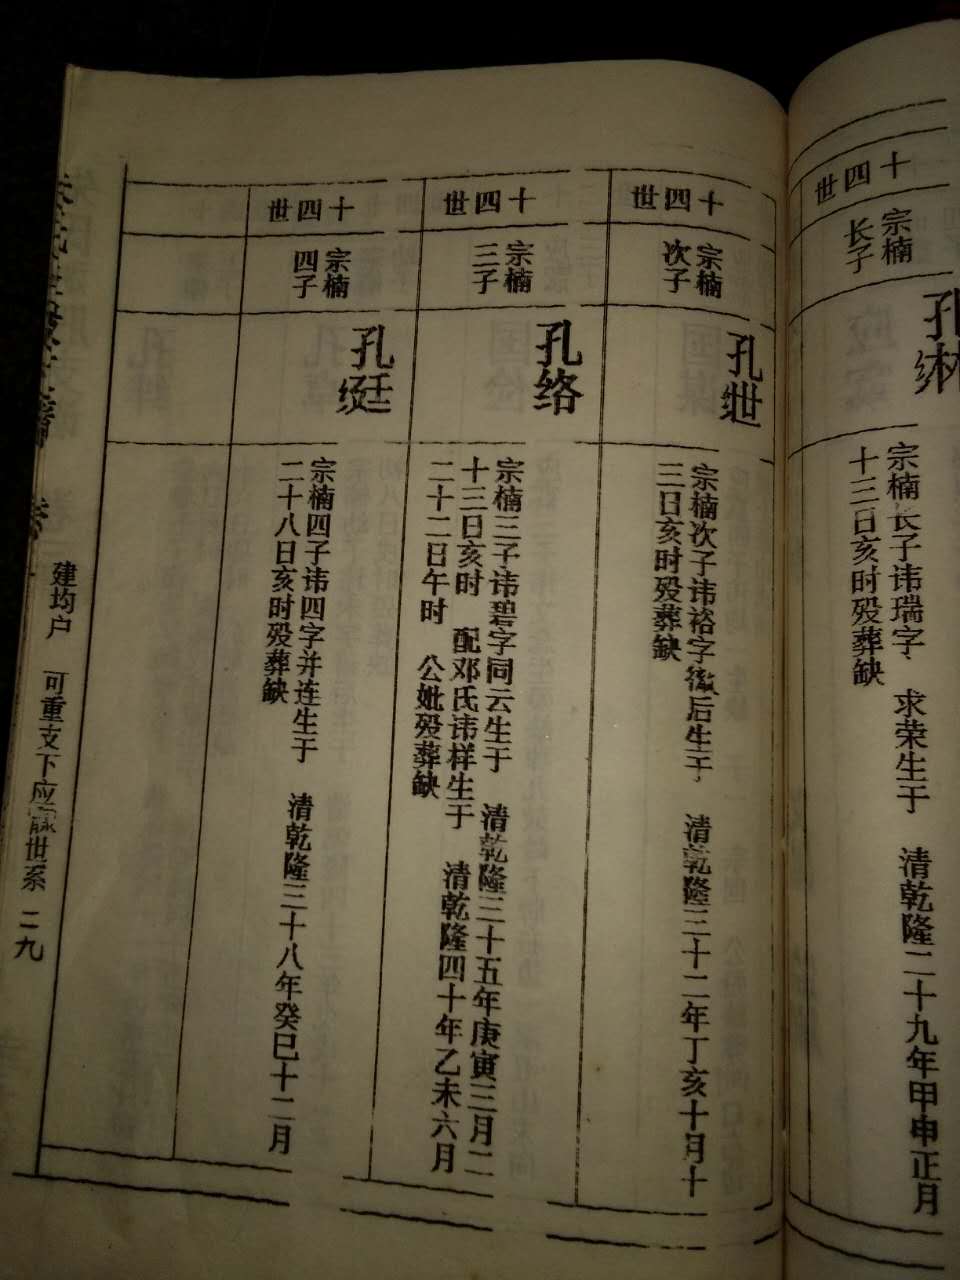 十四世
宗楠
长子
孔𬘭
宗楠长子讳瑞字 求荣生于 清乾隆二十九年甲申正月
十三日亥时殁葬缺
十四世
宗楠
次子
孔绁
宗楠次子讳裕字徽后生于 清乾隆三十二年丁亥十月十
三日亥时殁葬缺
十四世
宗楠
三子
孔络
宗楠三子讳碧字同云生于 清乾隆三十五年庚寅三月二
十三日亥时 配邓氏讳样生于 清乾隆四十年乙未六月
二十二日午时 公妣殁葬缺
十四世
宗楠
四子
孔𬘩
宗楠四子讳四字并连生于 清乾隆三十八年癸巳十二月
二十八日亥时殁葬缺
建均户 可重支下应世系 二九